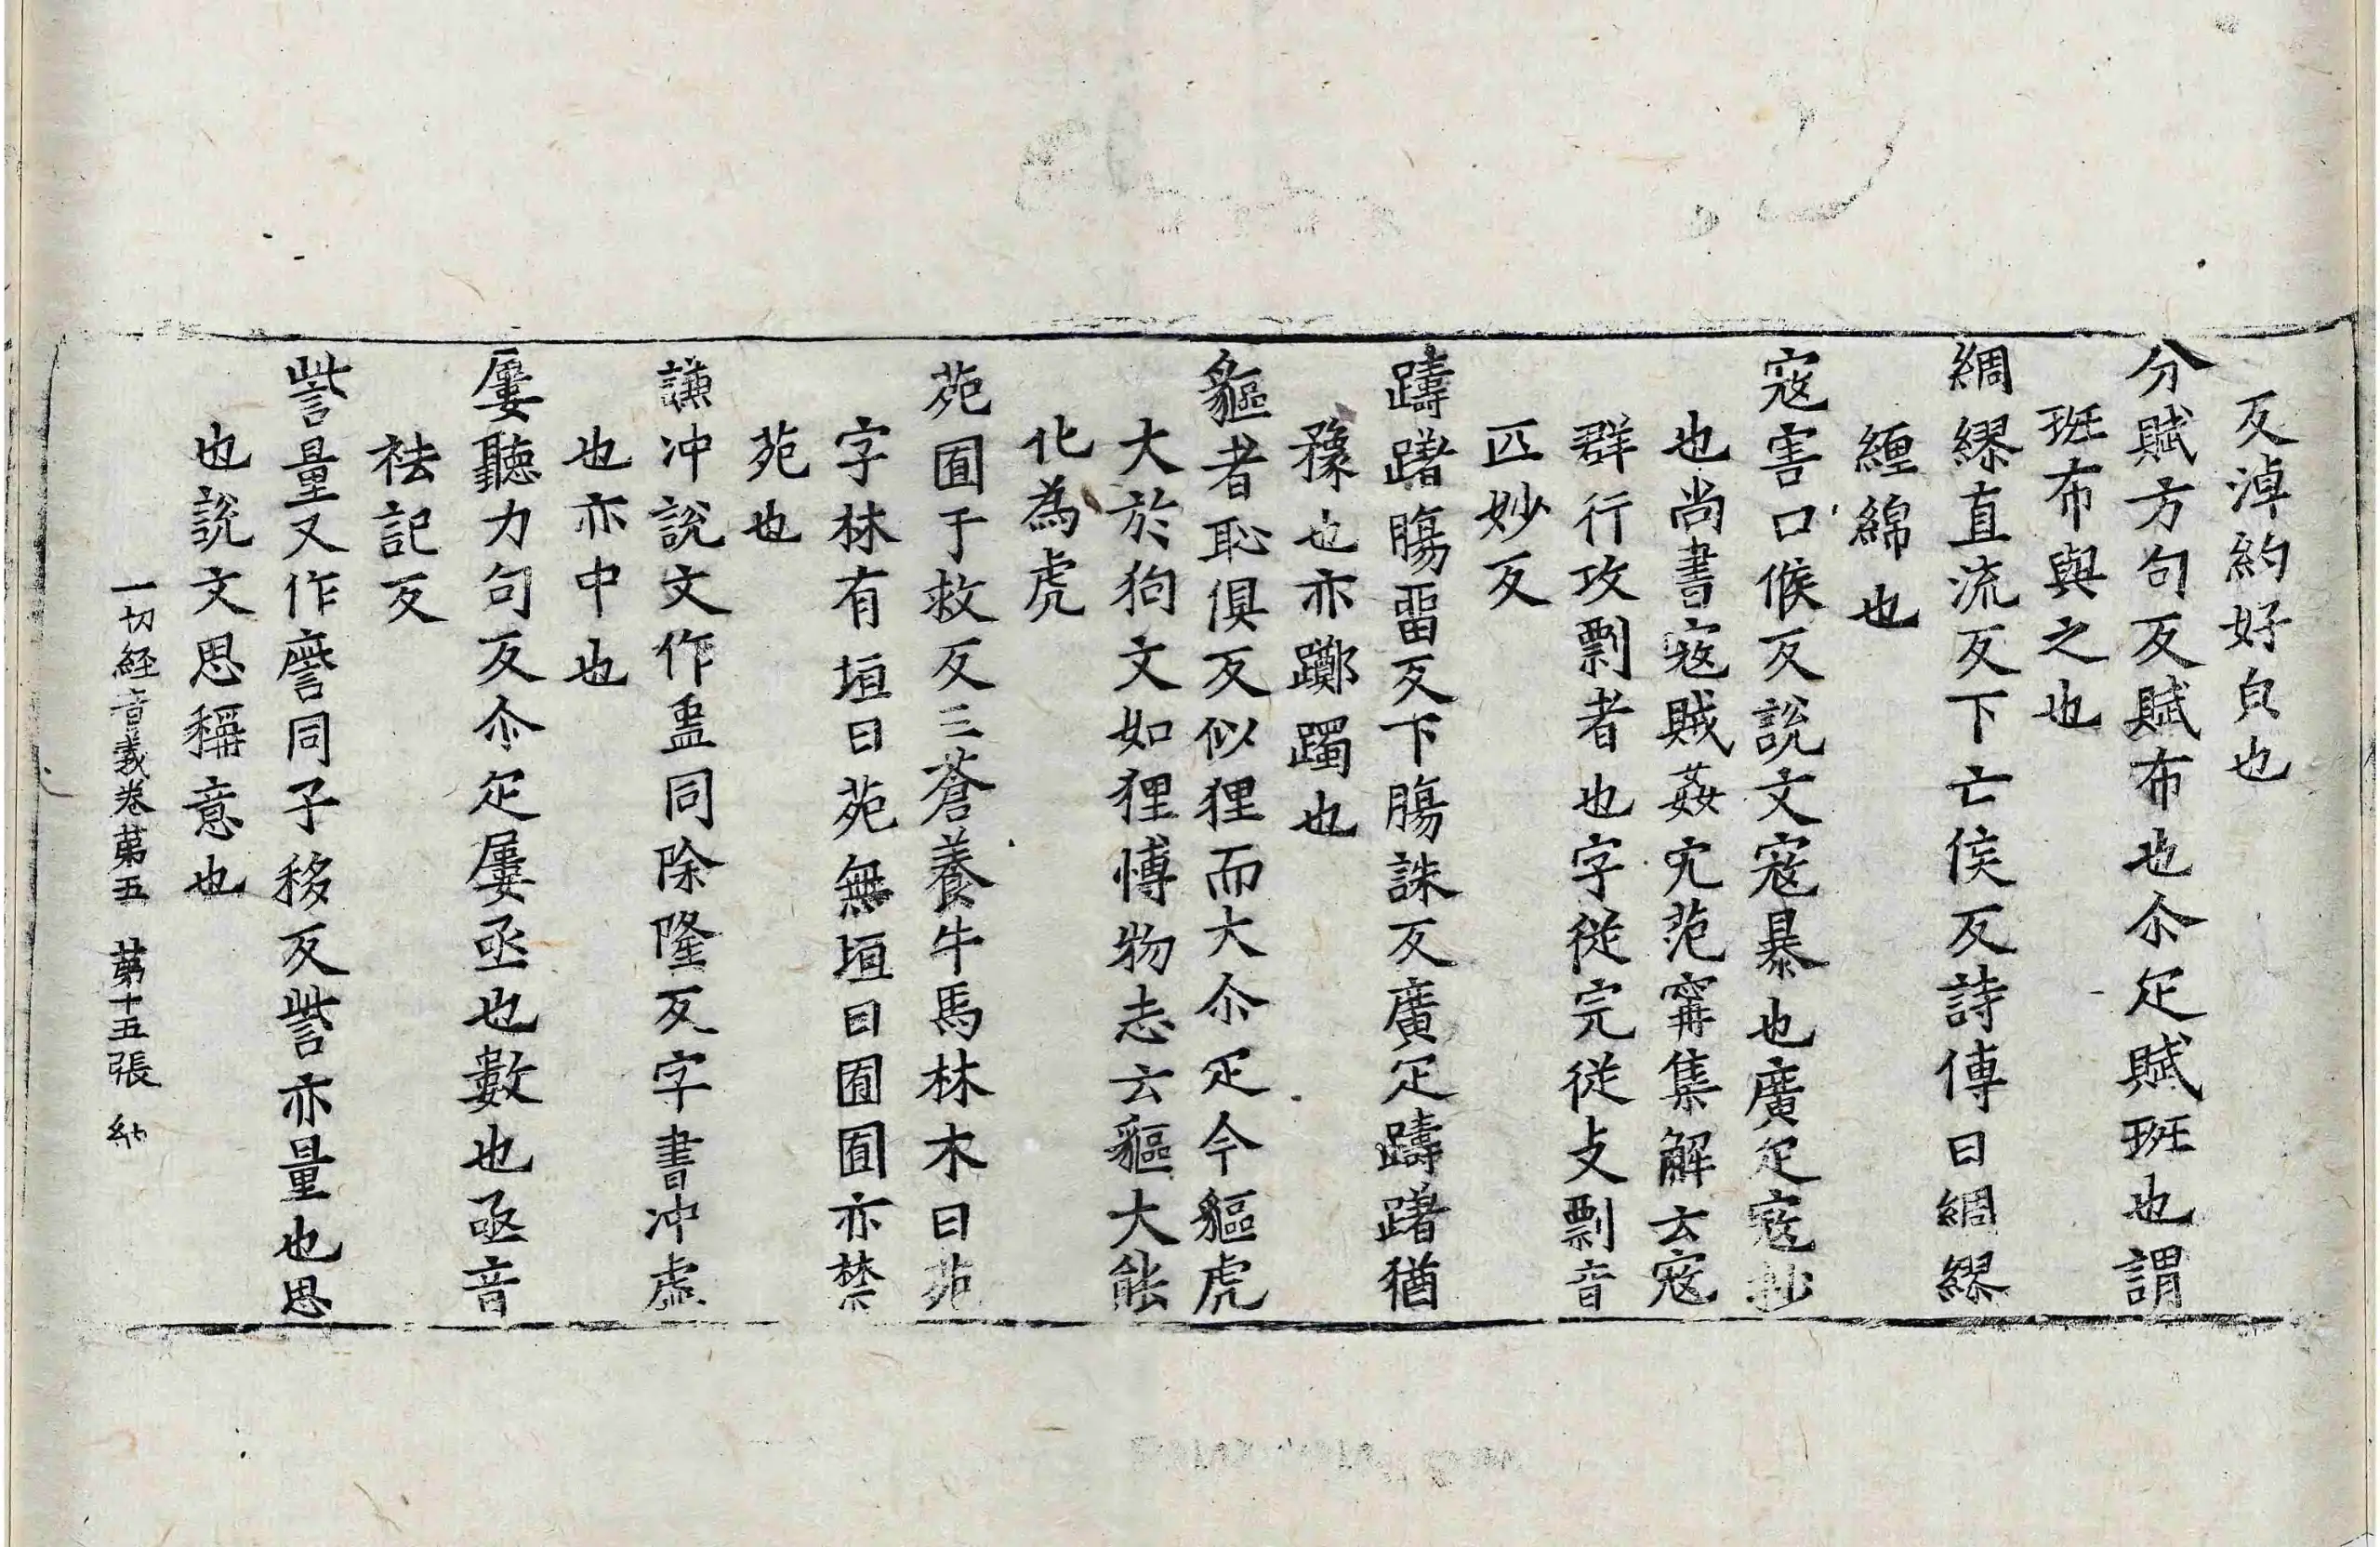 反淖約好皃也
分賦方句反賦布也尒疋賦班也謂
班布與之也
綢繆直流反下亡侯反詩傳曰綢繆
纏綿也
寇害口候反說文寇暴也廣疋寇抄
也尚書寇賊姦宄范甯集解云寇
群行攻剽者也字從完從攴剽音
匹妙反
躊躇腸畱反下腸誅反廣疋躊躇猶
豫也亦躑躅也
貙者恥俱反似狸而大尒疋今貙虎
大於狗文如狸博物志云貙大能
化為虎
苑囿于救反三蒼養牛馬林木曰苑
字林有垣曰苑無垣曰囿囿亦禁
苑也
謙沖說文作盅同除隆反字書沖虛
也亦中也
屢聽力句反尒疋屢亟也數也亟音
祛記反
訾量又作𧩹同子移反訾亦量也思
也說文思稱意也
一切經音義卷苐五 苐十五張 納